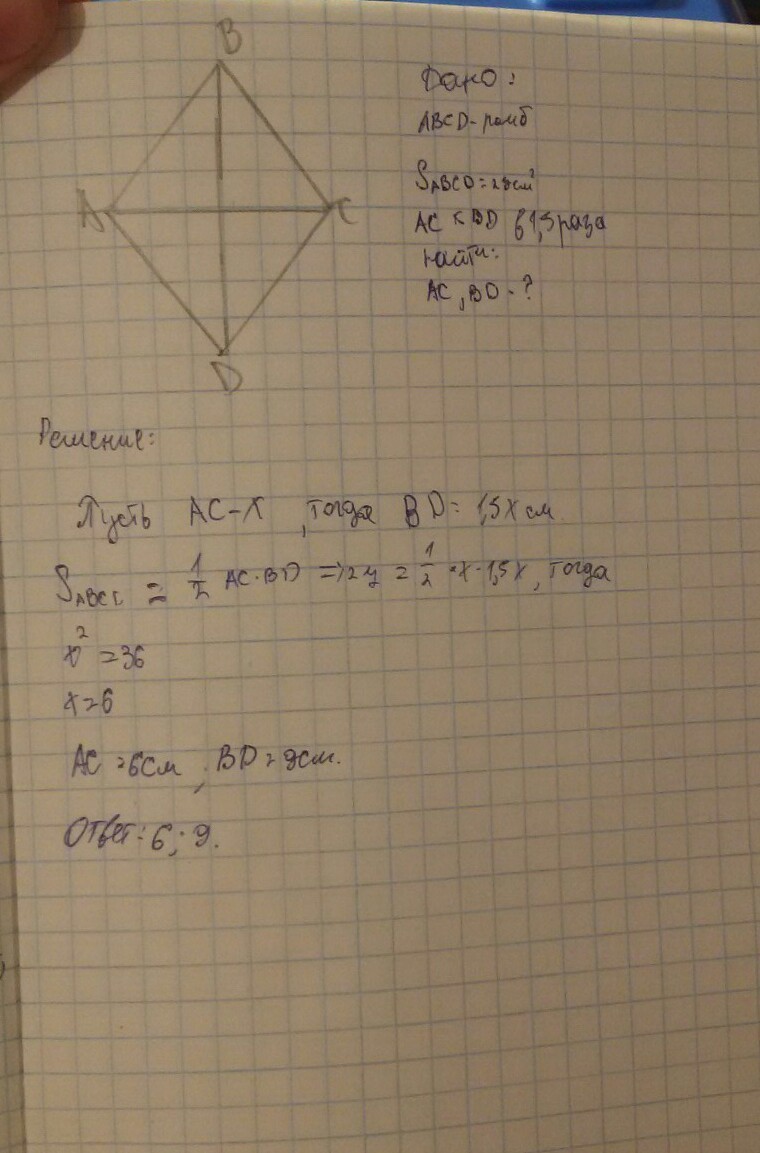 B
A
C
D
Дано:
ABCD-ромб
S ABCD = см²
AC < BD в 1,5 раза
Найти:
AC, BD-?
Решение:
Пусть AC-x, тогда BD= 1,5x см.
S ABCD = 1/2 AC·BD => = 1/2 ·x·1,5x, тогда
x² =36
x=6
AC =6см, BD=9см.
Ответ: 6; 9.